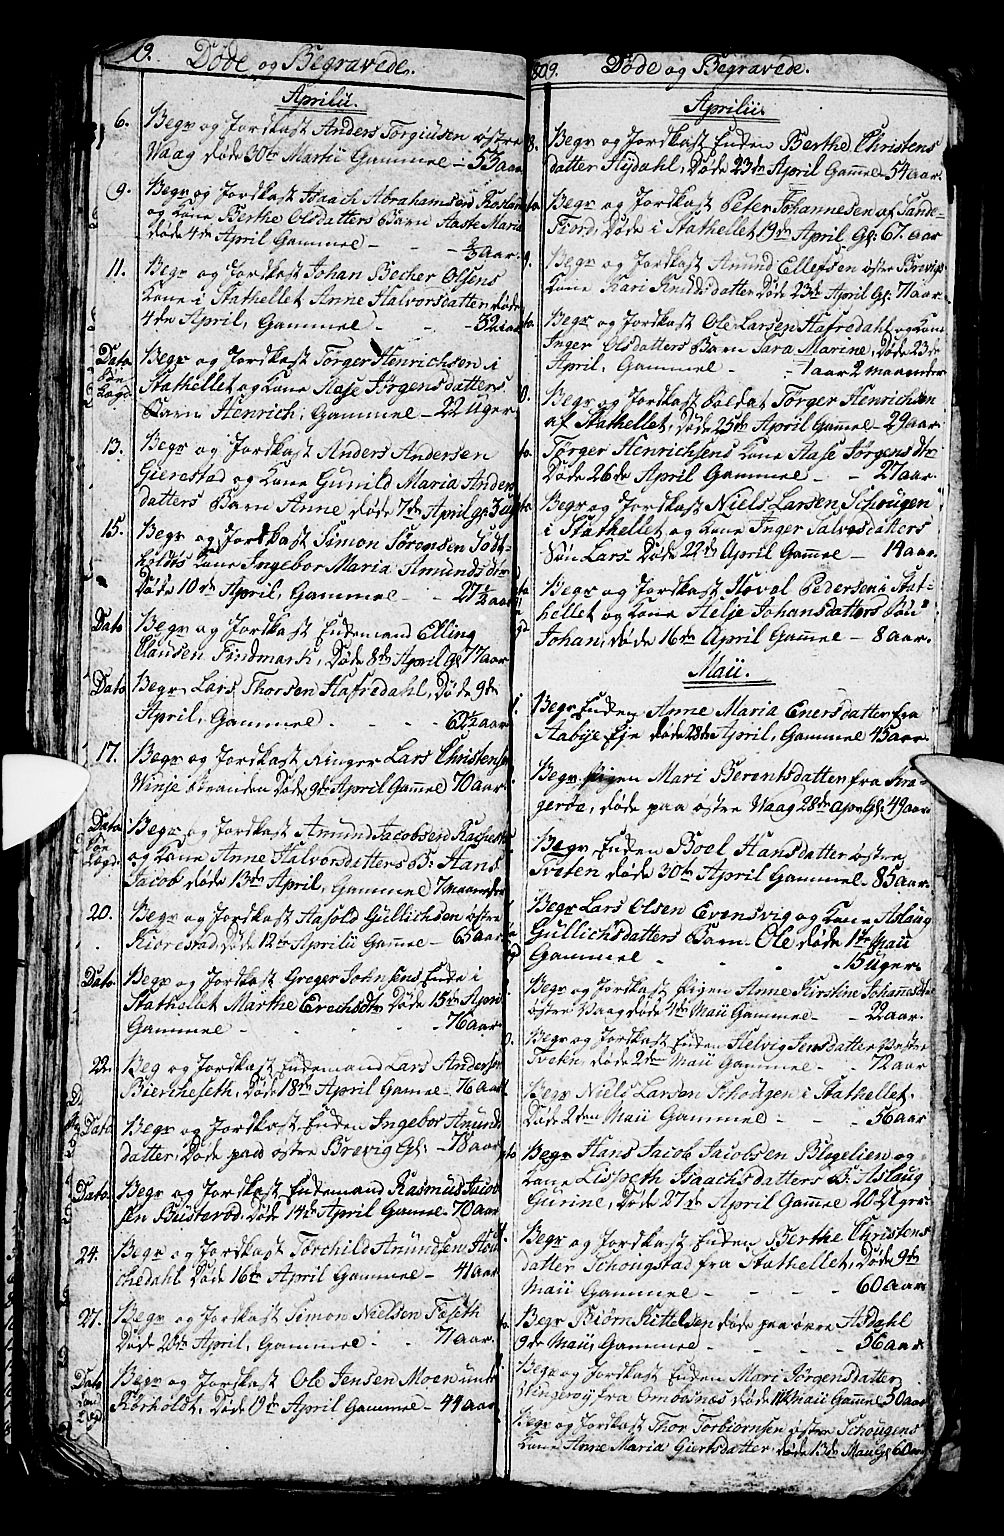 19. Døde og Begravede.
Aprilii.
6. Begr og Jordkast Anders Torgiusen østre
Waag døde 30te Martii Gammel - 53 aar
9. Begr og Jordkast Isaach Abrahamsen
og Kone Berthe Olsdatters Barn Aaste Maria
døde 4de April Gammel - - aar.
11. Begr og Jordkast Johan Becher Olsens
Kone i Stathellet Anne Halvorsdatter, døde
4de April, Gammel - - 32 aar
Dato Begr og Jordkast Tørger Henrichsen i
Stathellet og Kone Aase Jørgensdatters
Barn Henrich, Gammel - 22 Uger
13. Begr og Jordkast Anders Andersen
Gierestad og Kone Gunild Maria Anders
datters Barn Anne døde 7de April gl 3 ug
15. Begr og Jordkast Simon Sørensen
Kone Ingebor Maria Amundsdtr
Døde 10de April, Gammel - - 27½ aar
Dato Begr og Jordkast Enkemand Elling
Clausen Findmark, Døde 8de April Gl 77 aar
Dato Begr Lars Thorsen Hafredahl, Døde 9de
April, Gammel - - - 61½ aar
17. Begr og Jordkast Ringer Lars Christensen
Winje Stranden Døde 9de April Gamel 70 aar
Dato Begr og Jordkast Amund Jacobsen
og Kone Anne Halvorsdatters B: Hans
Jacob døde 13de April, Gammel 7 maaneder
20. Begr og Jordkast Aasold Gullichsen østre
Kiorestad, Døde 12te Aprilii Gamel - 65 aar
Dato Begr og Jordkast Greger Johnsens Enke i
Stathellet Marthe Erechsdtr Døde 15de April
Gammel - - - 76 aar
22. Beg og Jordkast Enkemand Lars Andersen
Biercheseth, Døde 18de April Gamel - 76 aar
Dato Begr og Jordkast Enken Ingebor Amunds
datter, Døde paa østre Brevig Gl: - 78 aar
Dato Begr og Jordkast Enkemand Rasmus Jacob
sen Busterød, Døde 14de April Gamel - 70 aar
24. Begr og Jordkast Torchild Amundsen
chedahl Døde 16te April Gammel - 41 aar
27. Begr og Jordkast Simon Nielsen Foseth
Døde 20de April, Gammel - - 71 aar.
Dato Begr og Jordkast Ole Jensen Moen under
Kørholt, Døde 19de April Gammel - 44 aar
809. Døde og Begravede.
Aprilii.
Begr og Jordkast Enken Berthe Christens
datter Hydahl, Døde 23de April Gamel - 54 aar.
Begr og Jordkast Peter Johannesen af Sande
Fiord, Døde i Stathellet 19de April Gl: 67. aar
Begr og Jordkast Amund Ellefsen østre Brevigs
Kone Kari Knudsdatter Døde 23de April Gl: 71 aar
Begr og Jordkast Ole Larsen Hafredahl og Kone
Inger Olsdatters Barn Sara Marine, Døde 23de
April, Gammel - - 1 aar 2 maaneder
Begr og Jordkast Soldat Tørger Henrichsen
af Stathellet, Døde 25de April Gamel - 29 aar
Tørger Henrichsens Kone Aase Jørgensdtr
Døde 26de April Gammel - - 27 aar.
Begr og Jordkast Niels Larsen Schougen
i Stathellet og Kone Inger Salvesdatters
Søn Lars Døde 22de April Gamel - 19 aar.
Begr og Jordkast Hovel Pedersen i Stat-
hellet og Kone Helje Johansdatters Søn
Johan, Døde 16de April Gamel - 8 aar.
Maii.
Begr Enken Anne Maria Enersdatter fra
Aabye Eje døde 28de April, Gammel 45 aar.
Begr Pigen Mari Berentsdatter fra Kra-
gerøe, døde paa østre Waag 28de Apr. Gl: 49 aar
Begr Enken Boel Hansdatter østre
Tveten døde 30te April Gammel - 85 aar.
Begr Lars Olsen Evensvig og Kone Aslaug
Gullichsdatters Barn - Ole døde 1te Maii
Gammel - - - 15 Uger.
Begr og Jordkast Pigen Anne Kirstine Johannesdtr
østre Vaag døde 4de Maii Gammel - - 22 aar.
Begr og Jordkast Enken Helvig Jensdatter østre
Tvetn, døde 2den Maii Gammel - - 72 aar
Begr Niels Larsen Schougen i Stathellet.
Døde 2den Maii Gammel - - 56 aar
Begr Hans Jacob Jacobsen Blegelien og
Kone Lispeth Isaachsdatters B: Aslaug
Gurine, Døde 27de April Gamel 20 Ugr:
Begr og Jordkast Enken Berthe Christens
datter Schougstad fra Stathellet, Døde 9de
Maii Gammel - - - 60 aar
Begr Biørn Kittelsen døde paa øvre Asdahl
9de Maii, Gammel - - - 56 aar
Begr og Jordkast Enken Mari Jørgensdatter
fra Ombosnes døde 11te Maii Gamel 50 aar
Begr og Jordkast Thor Torbiornsen østre Schougens
Kone Anne Maria Giertsdatter, døde 13de Maii Gl 60 aar